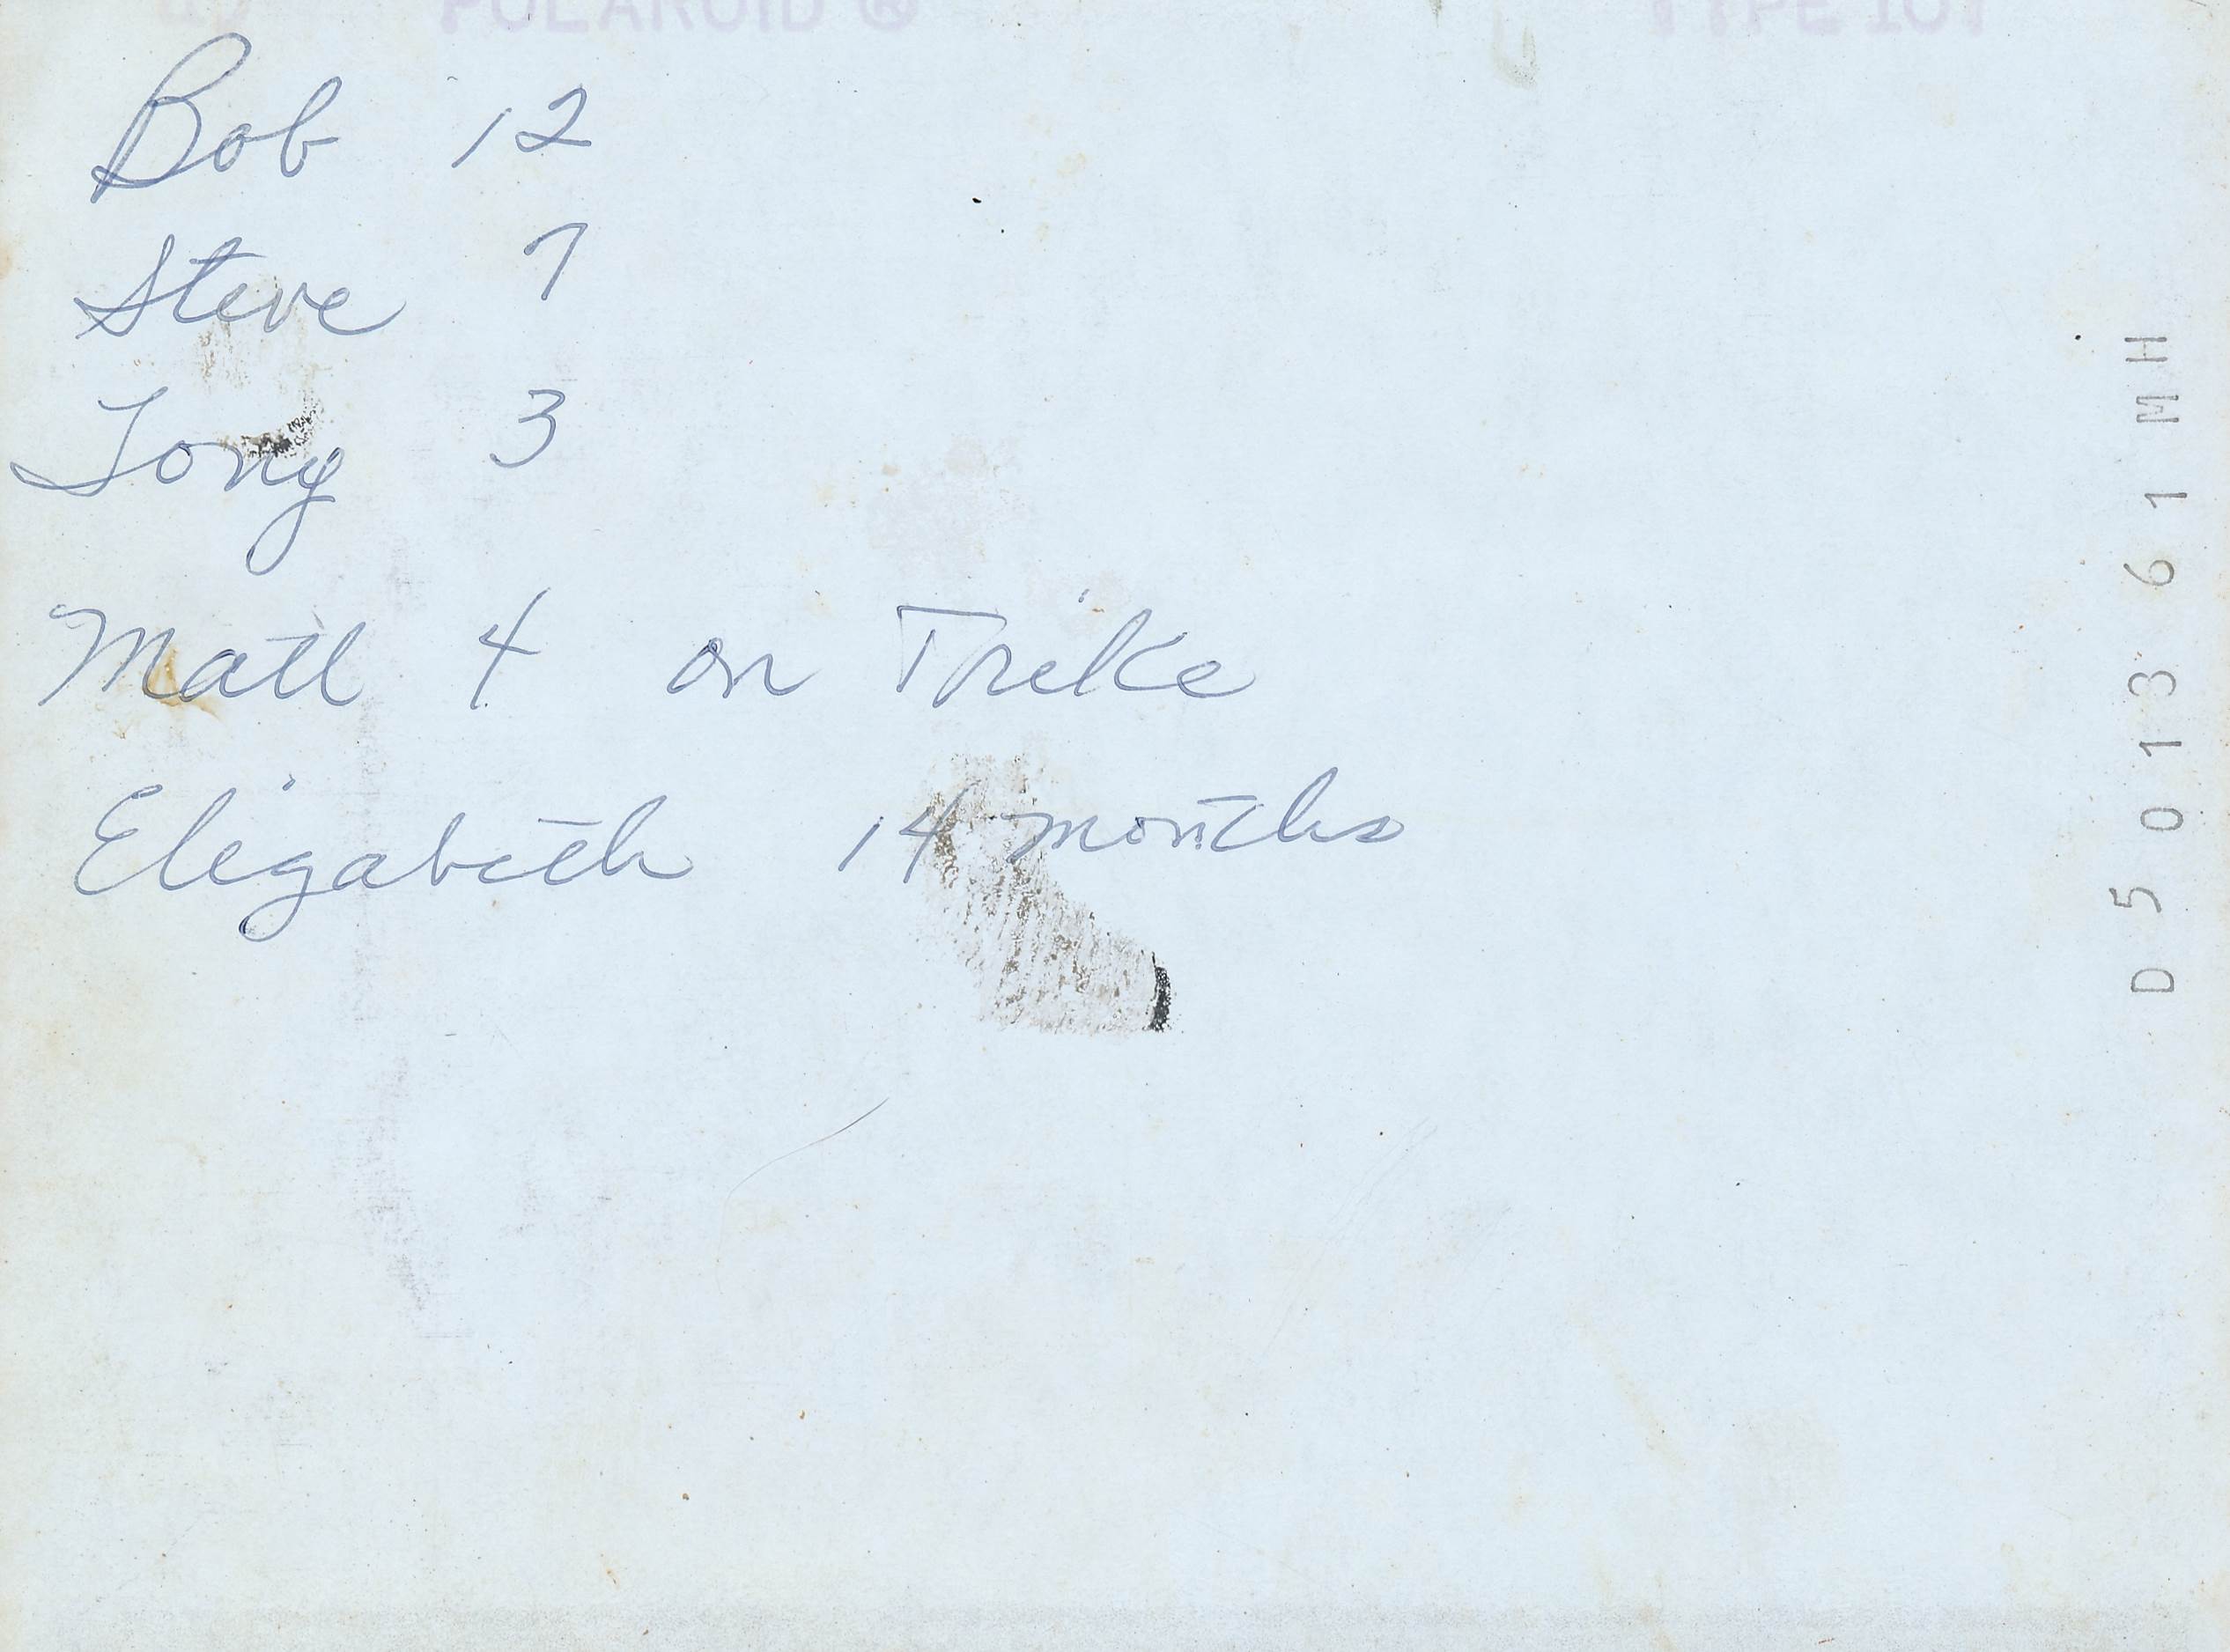 POLAROID ® TYPE 107
Bob 12
Steve 7
Tony 3
Matt 4 on Trike
Elizabeth 14 months
D501361MH